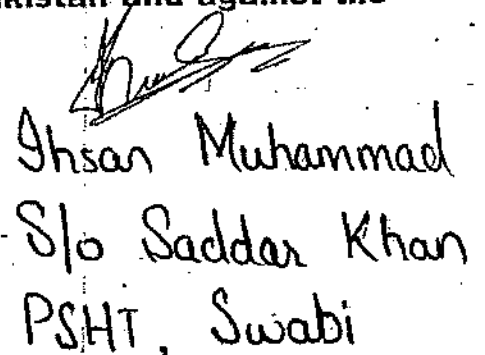 and against the
Ihsan Muhammad
S/o Saddar Khan
PSHT, Swabi